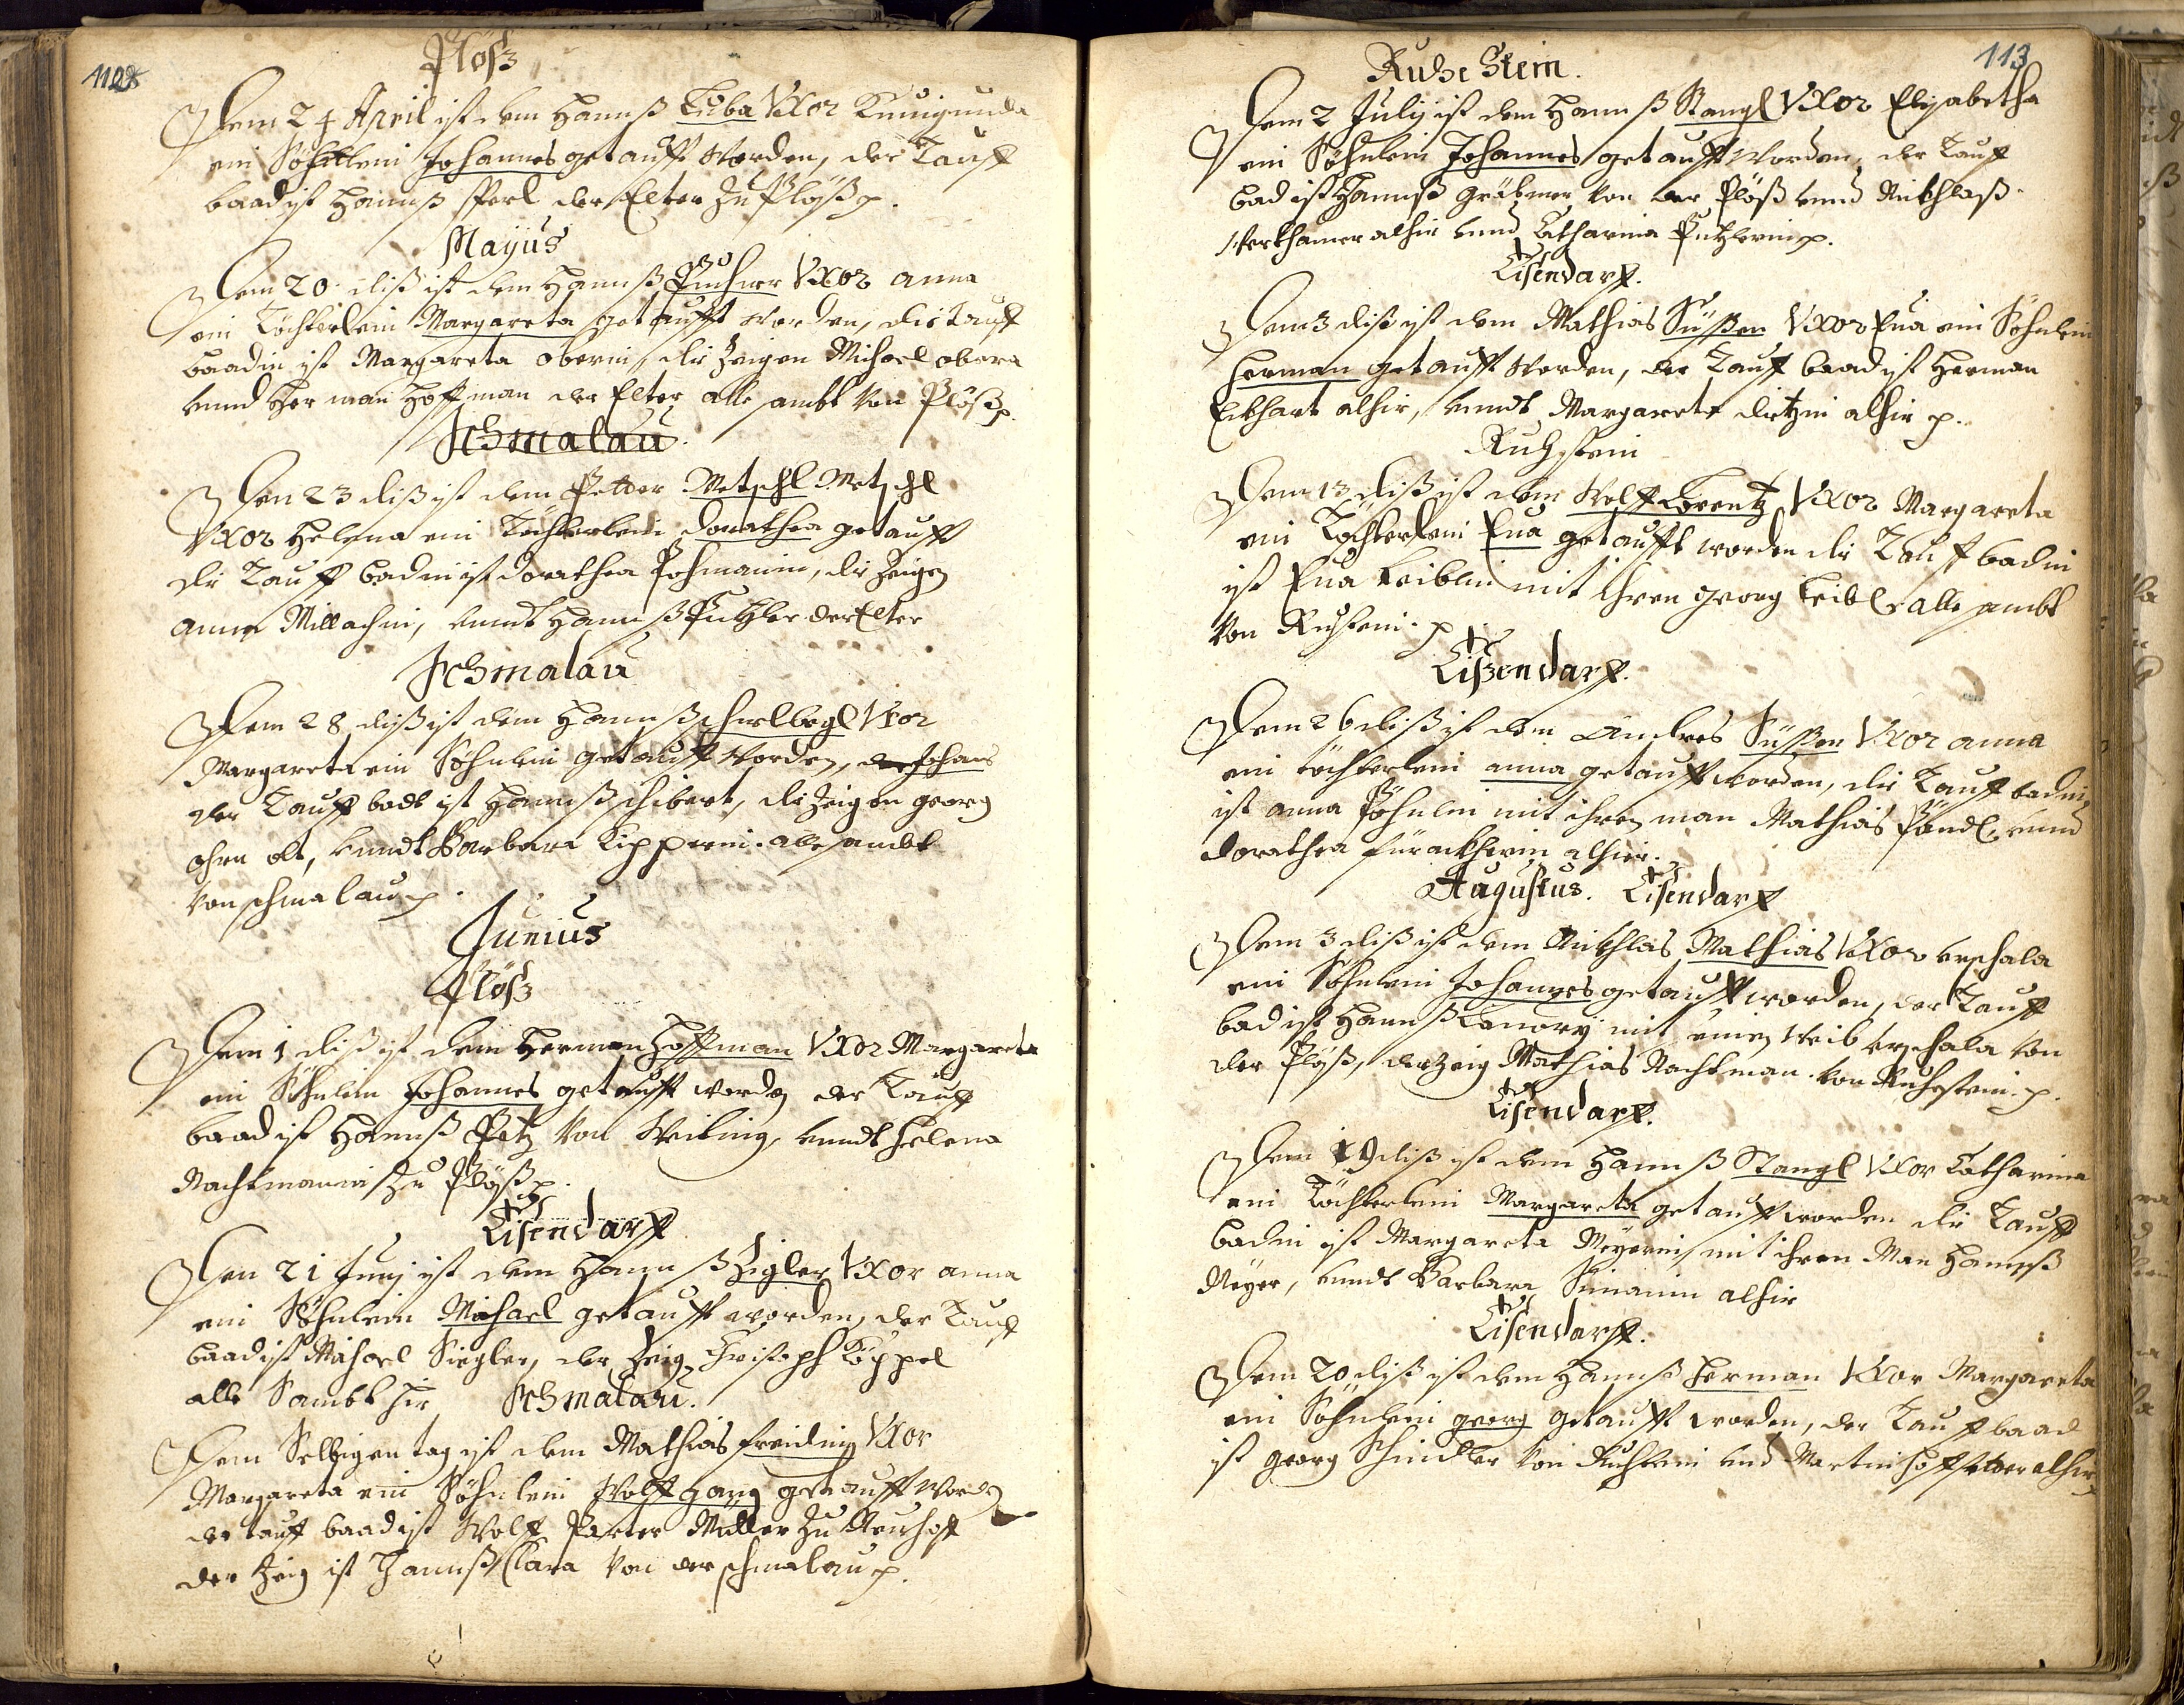 112
Plöß
Den 24 April ist dem Hannß Liba Uxor Kunigunda
ein Söhnlein Johannes getaufft Worden, der Tauff
baad ist Hannß der Elter zu Plöß p.
Mayus
Den 20 diß ist dem Hannß Puchner Uxor anna
ein Töchterlein Margareta getaufft worden, die tauff
baadin ist Margareta oberin, die Zeigen Michael obera
unnd Herman Hoffman der Elter alle sambt von Plöß p.
Schmalau
Den 23 diß ist dem Petter Metschl Metschl
Uxor Helena ein Töchterlein dorathea getaufft
die Tauff badin ist dorathea Pohmanin, die Zeigen
anna Millachin, unndt Hannß der Elter
Schmalau
Den 28 diß ist dem Hannß Uxor
Margareta ein Söhnlein getaufft Worden, Johans
der Tauff badt ist Hannß schibert, die Zeigen georg
alt, unndt Barbara Kipperin alle sambt
von schmalau p.
Junius
Plöß
Den 1 diß ist dem Herman Hoffman Uxor Margareta
ein Söhnlein Johannes getaufft worden der Tauff
baad ist Hannß Petz von Weiking, unndt Helena
Nachtmanin Zu Plöß p
Eisendarff
Den 21 Juny ist dem Hannß Zigler Uxor anna
ein Söhnlein Michael getaufft worden, der Tauff
baad ist Michael Siegler, der Zeig Christoph Köppel
alle Sambt hir Schmalau.
Den Selbigen tag ist dem Mathias freiding Uxor
Margareta ein Söhnlein Wolffgang getaufft Worden
der tauff baad ist Wolff Parter Müller Zu Neuhoff
der Zeig ist Hannß Clara von der schmalau p.
113
Ruhe Stein.
Den 2 July ist dem Hannß Stangl Uxor Elisabetha
ein Söhnlein Johannes getaufft Worden, der Tauff
bad ist Hannß grübner von der Plöß unnd Nikhlaß
Werkhamer alhir unnd Catharina p.
Eisendarff.
Den 3 diß ist dem Mathias Süßen Uxor Eua ein Söhnlein
Herman getaufft Worden, der Tauff baad ist Herman
Eckhart alhir, unndt Margareta dietzin alhir p.
Ruhstein
Den 13 diß ist dem Wolff Lorentz Uxor Margareta
ein Töchterlein Eua getaufft worden die Tauff badin
ist Eua Leiblin mit Ihren georg Leibl alle sambt
von Ruhstein p
Eißendarff.
Den 26 diß ist dem Andres Süßen Uxor anna
ein töchterlein anna getaufft worden, die Tauff badin
ist anna mit ihren man Mathias unnd
dorathea alhier.
Augustus. Eisendarff
Den 3 diß ist dem Nikhlas Mathias Uxor Urschala
ein Söhnlein Johannes getaufft worden, der Tauff
bad ist Hannß mit seinen Weib Urschala von
der Plöß, der Zeig Mathias Nachtman von Ruhestein p.
Eisendarff.
Den 19 diß ist dem Hannß Stangl Uxor Catharina
ein Töchterlein Margareta getaufft worden die Tauff
badin ist Margareta Meyerin mit ihren Man Hannß
Meyer, unndt Barbara Simanin alhir
Eisendarff.
Den 20 diß ist dem Hannß Herman Uxor Margareta
ein Söhnlein georg getaufft worden, der Tauff baad
ist georg Schindler von Ruhstein und Martin alhir